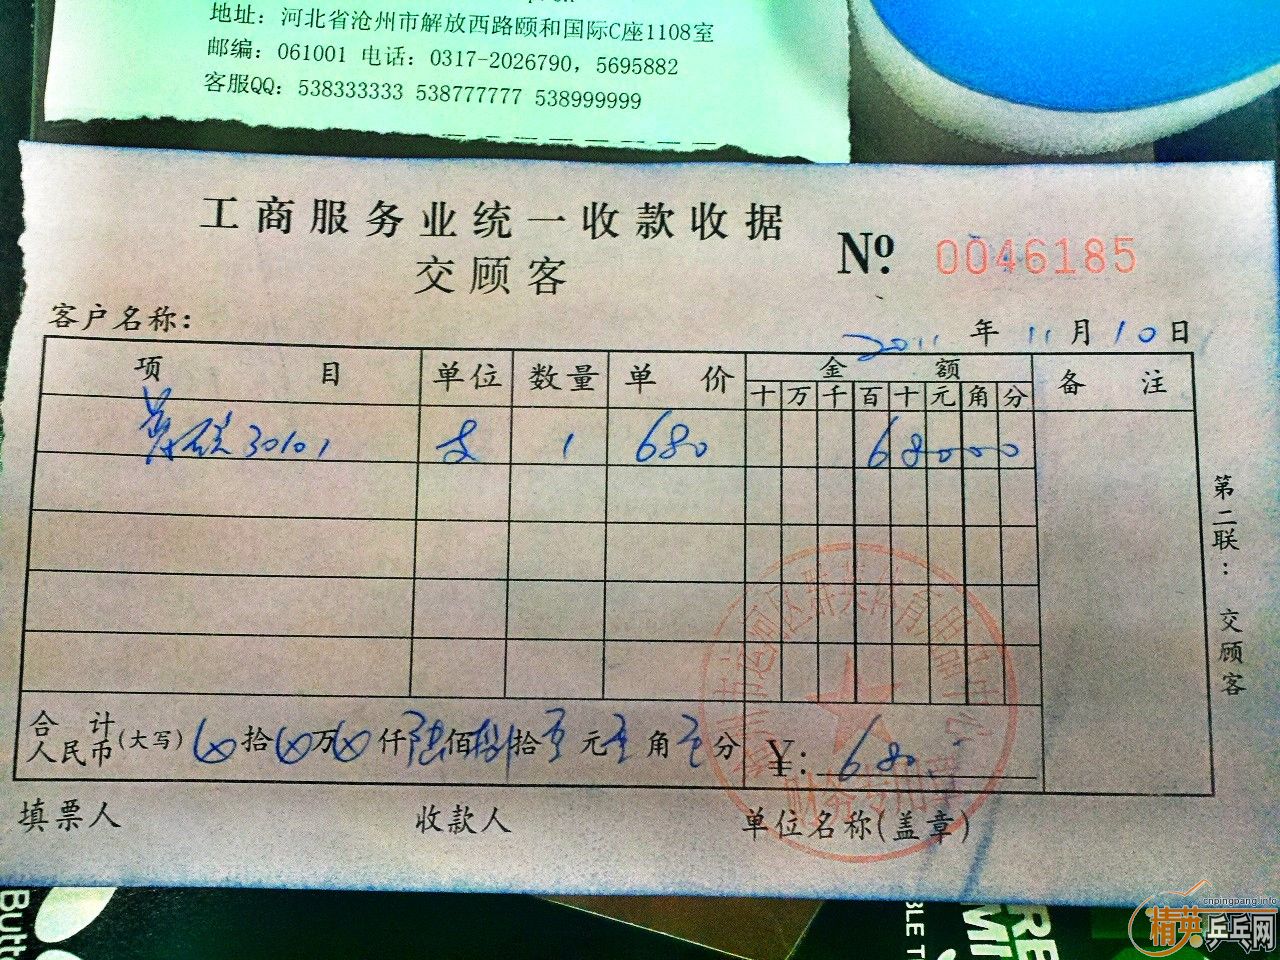 地址：河北省沧州市解放西路颐和国际C座1108室
邮编：061001 电话：0317-2026790，5695882
客服QQ：538333333 538777777 538999999
工商服务业统一收款收据
交顾客
№ 0046185
客户名称：
2011 年 11 月 10 日
项目 单位 数量 单价 金额 备注
十 万 千 百 十 元 角 分
30101 支 1 680 68000
第二联：交顾客
合计
人民币(大写) 拾 万 仟 陆 佰 捌 拾 零 元 零 角 零 分 ¥：680
财务专用章
填票人 收款人 单位名称(盖章)
Butt
BLE T
cnpingpang.info
精英乒乓网